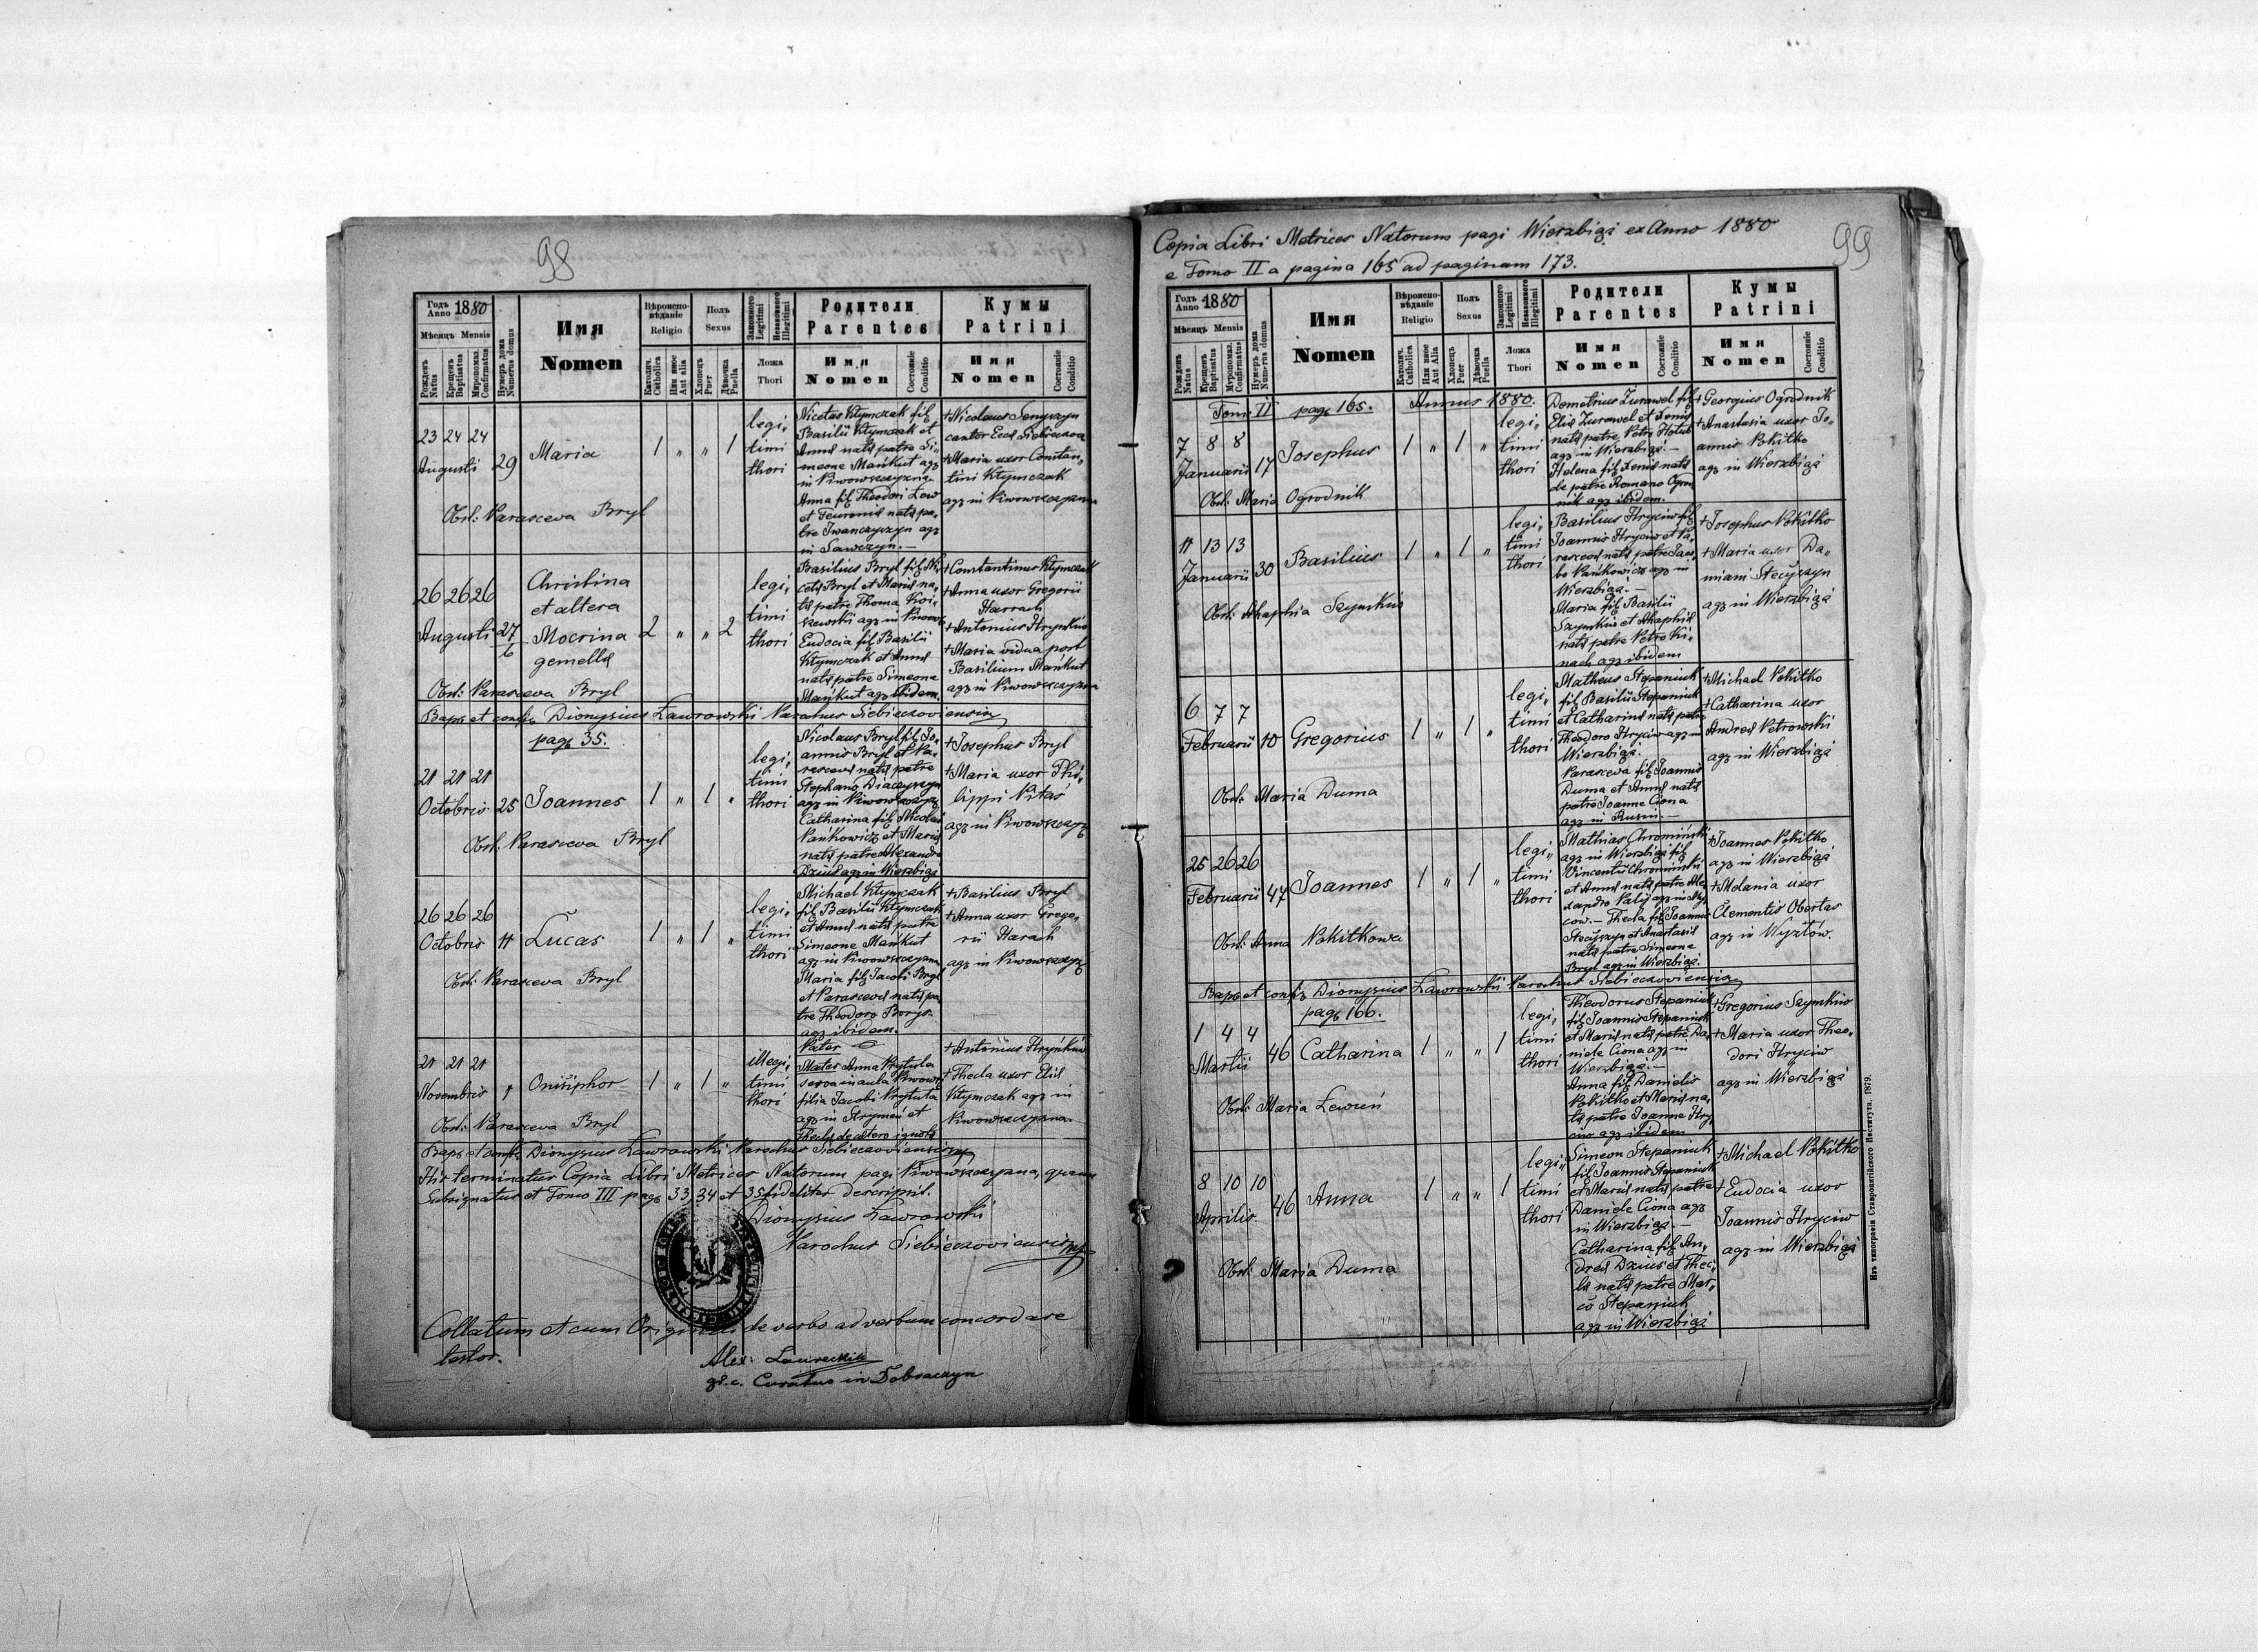 98
Годъ Anno 1880
Мѣсяцъ Mensis
Рожденъ Natus
Крещенъ Baptisatus
Мѵропомаз. Confirmatus
Нумеръ дома Numerus domus
Имя
Nomen
Вѣроисповѣданіе
Religio
Католич. Catholica
Или иное Aut alia
Полъ
Sexus
Хлопець Puer
Дѣвочка Puella
Законного Legitimi
Незаконного Illegitimi
Ложа
Thori
Родители
Parentes
Имя
Nomen
Состояніе Conditio
Кумы
Patrini
Имя
Nomen
Состояніе Conditio
23 24 24
Augusti 29
Maria
1 „ „ 1
legi„
timi
thori
Nicetas Kłymczak fil
Basilii Kłymczak et
Annæ natæ patre Si„
meone Mańkut agr
in Piwowszczyzna
Anna fil Theodori Lew
et Feuroniæ natæ pa„
tre Iwanczyszyn agr
in Sawczyn.—
+Nicolaus Senyszyn
cantor Eccl Siebieczow
+Maria uxor Constan„
tini Kłymczak
agr in Piwowszczyzna
Obst: Parasceva Bryl
26 26 26
Augusti 27
6
Christina
et altera
Mocrina
gemellæ
2 „ „ 2
legi„
timi
thori
Basilius Bryl fil Ni„
cetæ Bryl et Mariæ na„
tæ patre Thoma Koi„
szewski agr in Piwow
Eudocia fil Basilii
Kłymczak et Annæ
natæ patre Simeone
Mańkut agr ibidem.
+Constantinus Kłymczak
+Anna uxor Gregorii
Harrach
+Antonius Hryńkiw
+Maria vidua post
Basilium Mańkut
agr in Piwowszczyzna
Obst: Parasceva Bryl
Bapt et confir Dionysius Ławrowski Parochus Siebieczoviensis
pag 35.
21 21 21
Octobris 25
Joannes
1 „ 1 „
legi„
timi
thori
Nicolaus Bryl fil Jo„
annis Bryl et Pa„
rascevæ natæ patre
Stephano Diaczyszyn
agr in Piwowszczyz
Catharina fil Nicolai
Pańkowicz et Mariæ
natæ patre Alexandro
Dzius agr in Wierzbiąż
+Josephus Bryl
+Maria uxor Phi„
lippi Pitaś
agr in Piwowszczyz
Obst. Parasceva Bryl
26 26 26
Octobris 11
Lucas
1 „ 1 „
legi„
timi
thori
Michael Kłymczak
fil Basilii Kłymczak
et Annæ natæ patre
Simeone Mańkut
agr in Piwowszczyzna
Maria fil Jacobi Bryl
et Parascevæ natæ pa
tre Theodoro Borys
agr ibidem.
+Basilius Bryl
+Anna uxor Grego„
rii Harach
agr in Piwowszczyz
Obst: Parasceva Bryl
21 21 21
Novembris 1
Onisiphor
1 „ 1 „
illegi„
timi
thori
Pater —
Mater Anna Prytuła
serva in aula Piwowsz
filia Jacobi Prytuła
agr in Strymeń et
Theclæ de cetero ignotæ
+Antonius Hryńkiw
+Thecla uxor Eliæ
Kłymczak agr in
Piwowszczyzna
Obst: Parasceva Bryl
Bapt et confir Dionysius Ławrowski Parochus Siebieczoviensis mp
His terminatur Copia Libri Metrices Natorum pagi Piwowszczyzna, quam
Subsignatus et Tomo III pag 33, 34 et 35 fideliter descripsit.
Dionysius Ławrowski
Parochus Siebieczoviensis mp
Collatum et cum Originali de verbo ad verbum concordare
testor.
Alex: Ławrecki
gr. c. Curatus in Dobraczyn
99
Copia Libri Metrices Natorum pagi Wierzbiąż ex Anno 1880
e Tomo II a pagina 165 ad paginam 173.
Годъ Anno 1880
Мѣсяцъ Mensis
Рожденъ Natus
Крещенъ Baptisatus
Мѵропомаз. Confirmatus
Нумеръ дома Numerus domus
Имя
Nomen
Вѣроисповѣданіе
Religio
Католич. Catholica
Или иное Aut Alia
Полъ
Sexus
Хлопецъ Puer
Дѣвочка Puella
Законного Legitimi
Незаконного Illegitimi
Ложа
Thori
Родители
Parentes
Имя
Nomen
Состояніе Conditio
Кумы
Patrini
Имя
Nomen
Состояніе Conditio
Tom II pag 165. Annus 1880.
7 8 8
Januarii 17
Josephus
1 „ 1 „
legi„
timi
thori
Demetrius Zurawel fil
Eliæ Zurawel et Xeniæ
natæ patre Petro Hołub
agr in Wierzbiąż.—
Helena fil Xeniæ natæ
de patre Romano Ogrod
nik agr ibidem.
+Georgius Ogrodnik
+Anastasia uxor Jo„
annis Pokitko
agr in Wierzbiąż
Obst: Maria Ogrodnik
11 13 13
Januarii 30
Basilius
1 „ 1 „
legi„
timi
thori
Basilius Hryciw fil
Joannis Hryciw et Pa„
rascevæ natæ patre Jaco
bo Pańkowicz agr in
Wierzbiąż.—
Maria fil Basilii
Szymkiw et Ahaphiæ
natæ patre Petro Ki„
nach agr ibidem
+Josephus Pokitko
+Maria uxor Da„
miani Stecyszyn
agr in Wierzbiąż
Obst: Ahaphia Szymkiw
6 7 7
Februarii 10
Gregorius
1 „ 1 „
legi„
timi
thori
Matheus Stepaniuk
fil Basilii Stepaniuk
et Catharinæ natæ patre
Theodoro Hryciw agr in
Wierzbiąż.
Parasceva fil Joannis
Duma et Annæ natæ
patre Joanne Ciona
agr in Rusin.—
+Michael Pokitko
+Catharina uxor
Andreæ Petrowski
agr in Wierzbiąż
Obst: Maria Duma
25 26 26
Februarii 47
Joannes
1 „ 1 „
legi„
timi
thori
Mathias Chromiński
agr in Wierzbiąż fil
Vincentii Chromiński
et Annæ natæ patre Ale
xandro Palij agr in
cow.— Thecla fil Joannis
Stecyszyn et Anastasiæ
natæ patre Simeone
Bryl agr in Wierzbiąż.
+Joannes Pokitko
agr in Wierzbiąż
+Melania uxor
Clementis Obertas
agr in Wyżłów.
Obst: Anna Pokitkowa
Bapt et confir Dionysius Ławrowski Parochus Siebieczoviensis
pag 166.
1 4 4
Martii 46
Catharina
1 „ „ 1
legi„
timi
thori
Theodorus Stepaniuk
fil Joannis Stepaniuk
et Mariæ natæ patre Da„
niele Ciona agr in
Wierzbiąż.—
Anna fil Danielis
Pokitko et Mariæ na„
tæ patre Joanne Hry„
ciw agr ibidem
+Gregorius Szymkiw
+Maria uxor Theo„
dori Hryciw
agr in Wierzbiąż
Obst: Maria Łewuń
8 10 10
Aprilis 46
Anna
1 „ „ 1
legi„
timi
thori
Simeon Stepaniuk
fil Joannis Stepaniuk
et Mariæ natæ patre
Daniele Ciona agr
in Wierzbiąż.—
Catharina fil An„
dreæ Dzius et Thec„
læ natæ patre Mat„
eo Stepaniuk
agr in Wierzbiąż
+Michael Pokitko
+Eudocia uxor
Joannis Hryciw
agr in Wierzbiąż
Obst: Maria Duma
Изъ типографіи Ставропигійского Института, 1879.